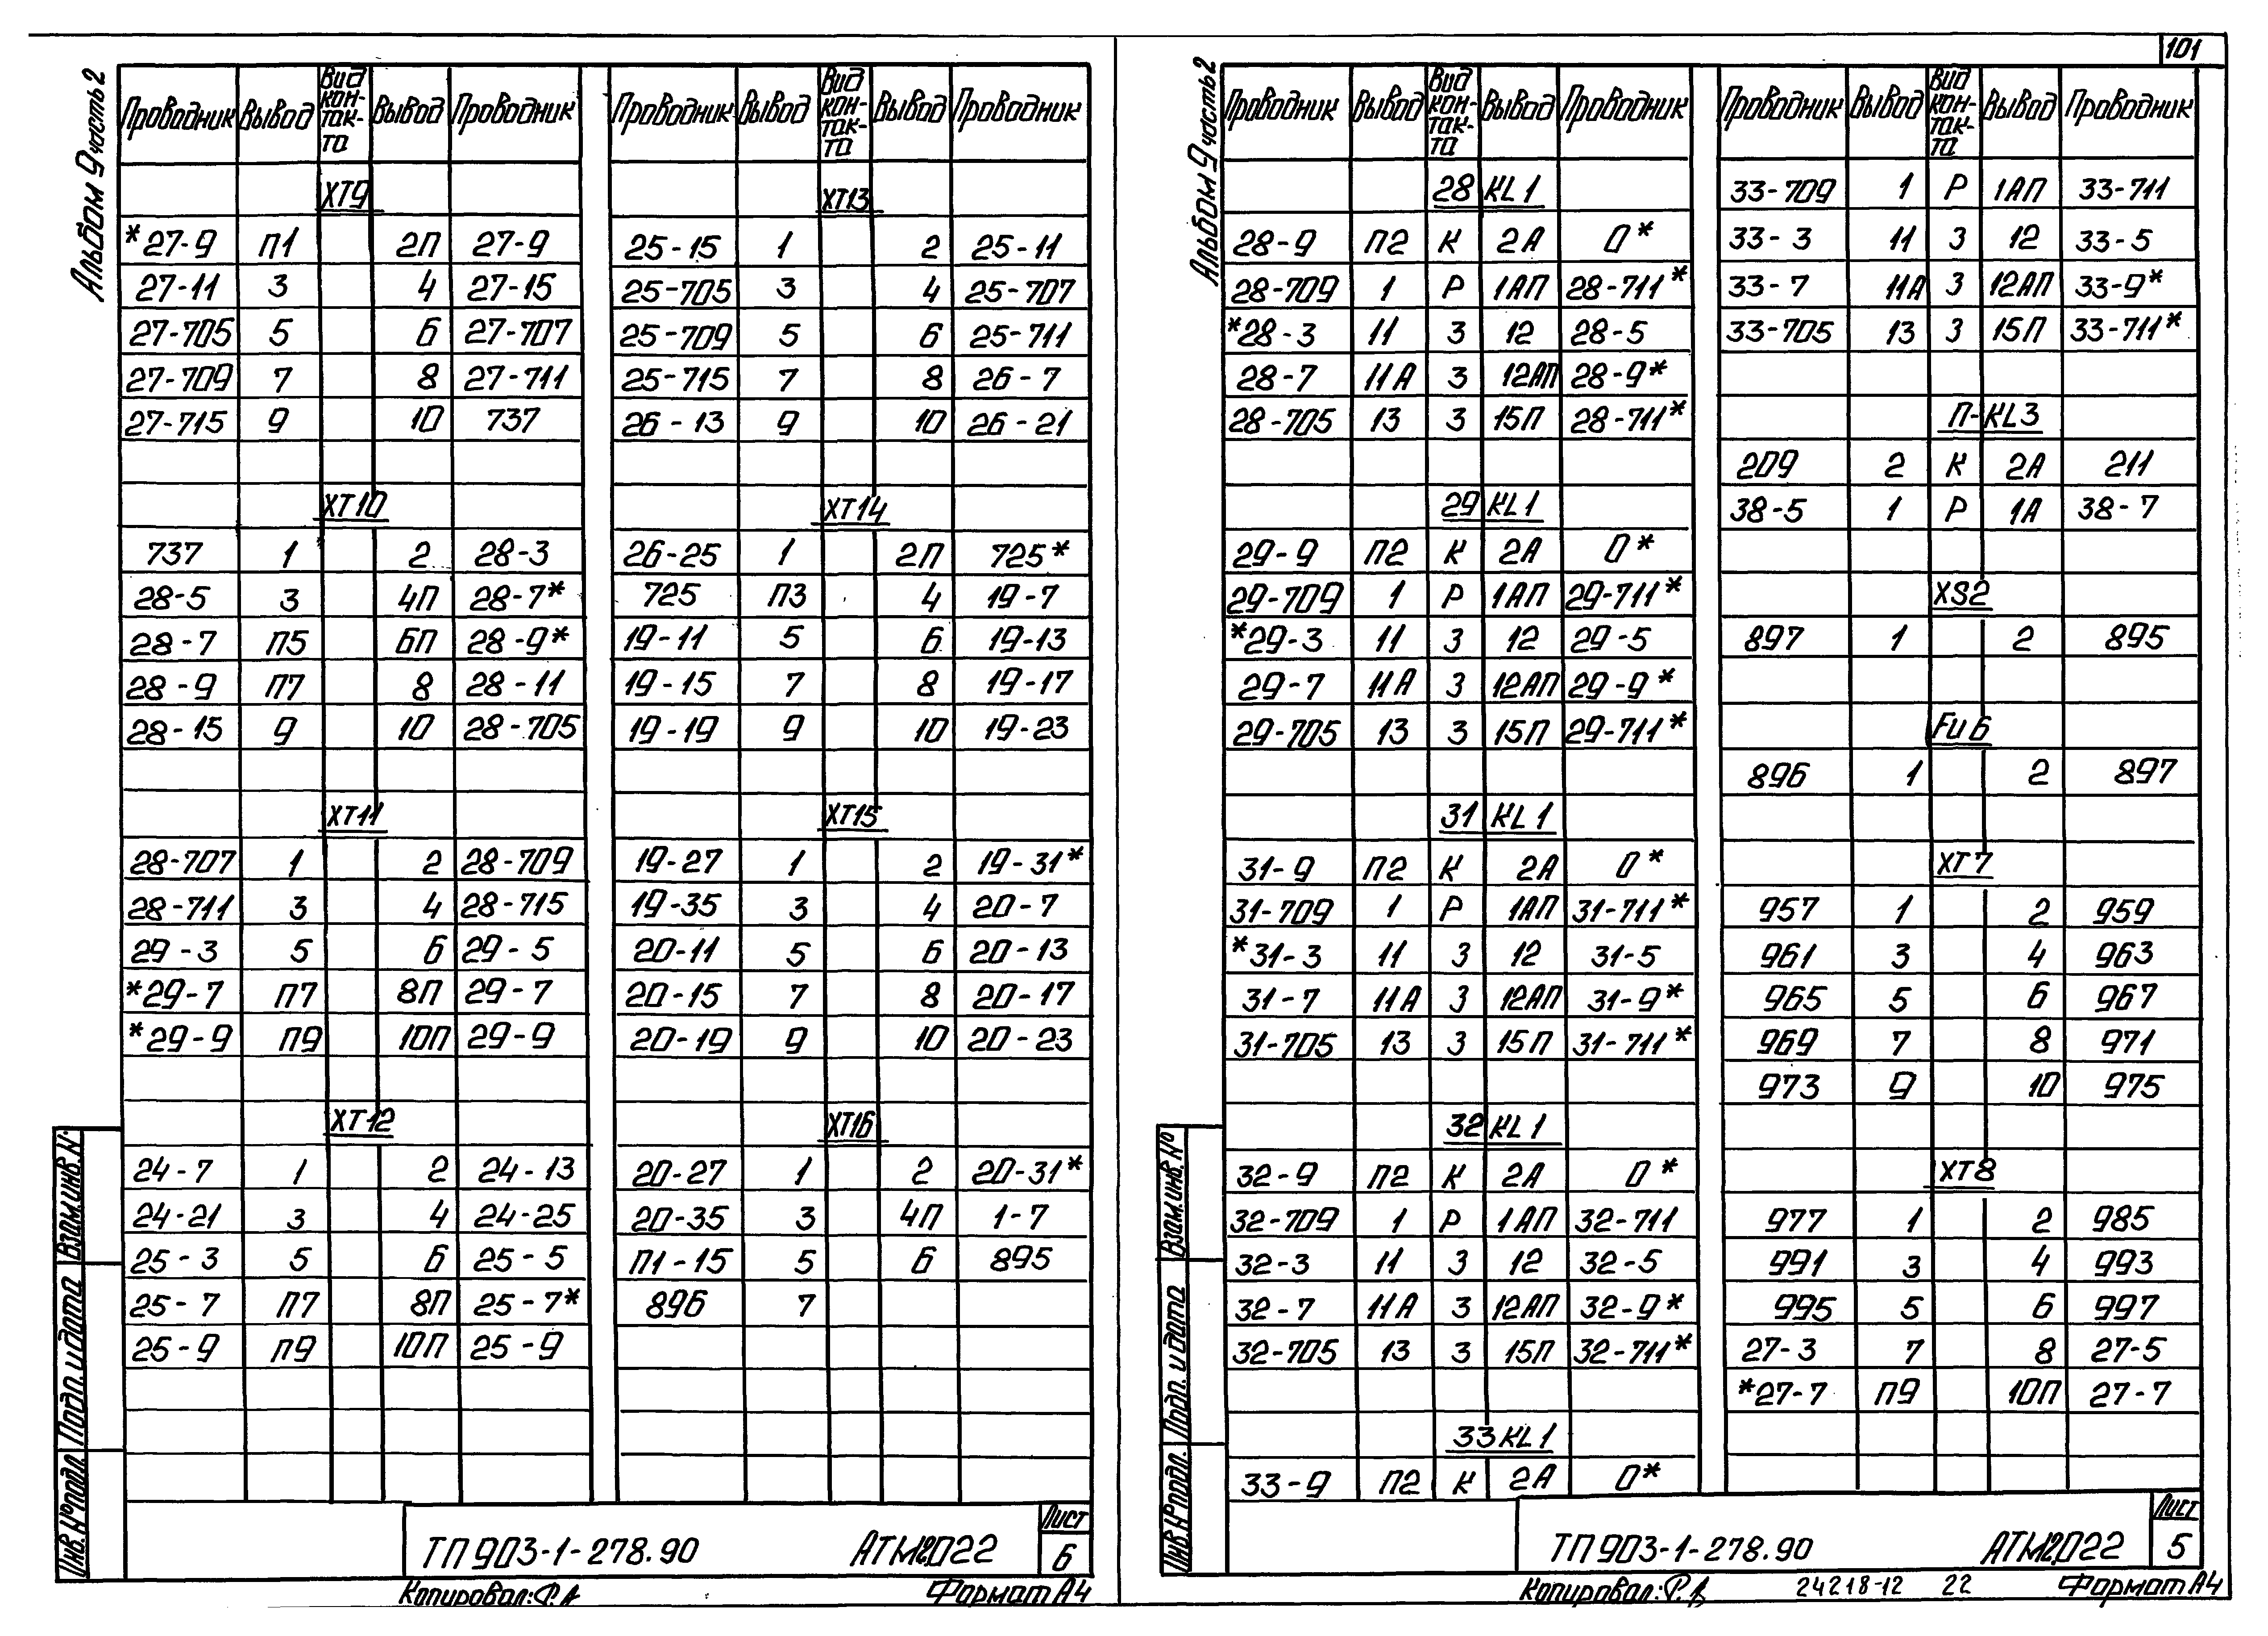 101
Альбом 9 часть 2
Проводник Вывод Вид кон-так-та Вывод Проводник
ХТ9
*27-9 П1 2П 27-9
27-11 3 4 27-15
27-705 5 6 27-707
27-709 7 8 27-711
27-715 9 10 737
ХТ10
737 1 2 28-3
28-5 3 4П 28-7*
28-7 П5 6П 28-9*
28-9 П7 8 28-11
28-15 9 10 28-705
ХТ11
28-707 1 2 28-709
28-711 3 4 28-715
29-3 5 6 29-5
*29-7 П7 8П 29-7
*29-9 П9 10П 29-9
ХТ12
24-7 1 2 24-13
24-21 3 4 24-25
25-3 5 6 25-5
25-7 П7 8П 25-7*
25-9 П9 10П 25-9
Проводник Вывод Вид кон-так-та Вывод Проводник
ХТ13
25-15 1 2 25-11
25-705 3 4 25-707
25-709 5 6 25-711
25-715 7 8 26-7
26-13 9 10 26-21
ХТ14
26-25 1 2П 725*
725 П3 4 19-7
19-11 5 6 19-13
19-15 7 8 19-17
19-19 9 10 19-23
ХТ15
19-27 1 2 19-31*
19-35 3 4 20-7
20-11 5 6 20-13
20-15 7 8 20-17
20-19 9 10 20-23
ХТ16
20-27 1 2 20-31*
20-35 3 4П 1-7
П1-15 5 6 895
896 7
Взам.инв.N°
Подп. и дата
Инв.N°подл.
ТП 903-1-278.90 АТМ2.022
Лист
6
Копировал:
Формат А4
Альбом 9 часть 2
Проводник Вывод Вид кон-так-та Вывод Проводник
28 KL1
28-9 П2 К 2А 0*
28-709 1 Р 1АП 28-711*
*28-3 11 З 12 28-5
28-7 11А З 12АП 28-9*
28-705 13 З 15П 28-711*
29 KL1
29-9 П2 К 2А 0*
29-709 1 Р 1АП 29-711*
*29-3 11 З 12 29-5
29-7 11А З 12АП 29-9*
29-705 13 З 15П 29-711*
31 KL1
31-9 П2 К 2А 0*
31-709 1 Р 1АП 31-711*
*31-3 11 З 12 31-5
31-7 11А З 12АП 31-9*
31-705 13 З 15П 31-711*
32 KL1
32-9 П2 К 2А 0*
32-709 1 Р 1АП 32-711
32-3 11 З 12 32-5
32-7 11А З 12АП 32-9*
32-705 13 З 15П 32-711*
33 KL1
33-9 П2 К 2А 0*
Проводник Вывод Вид кон-так-та Вывод Проводник
33-709 1 Р 1АП 33-711
33-3 11 З 12 33-5
33-7 11А З 12АП 33-9*
33-705 13 З 15П 33-711*
П-KL3
209 2 К 2А 211
38-5 1 Р 1А 38-7
XS2
897 1 2 895
FU6
896 1 2 897
ХТ7
957 1 2 959
961 3 4 963
965 5 6 967
969 7 8 971
973 9 10 975
ХТ8
977 1 2 985
991 3 4 993
995 5 6 997
27-3 7 8 27-5
*27-7 П9 10П 27-7
Взам.инв.N°
Подп. и дата
Инв.N°подл.
ТП 903-1-278.90 АТМ2.022
Лист
5
Копировал:
24218-12 22
Формат А4